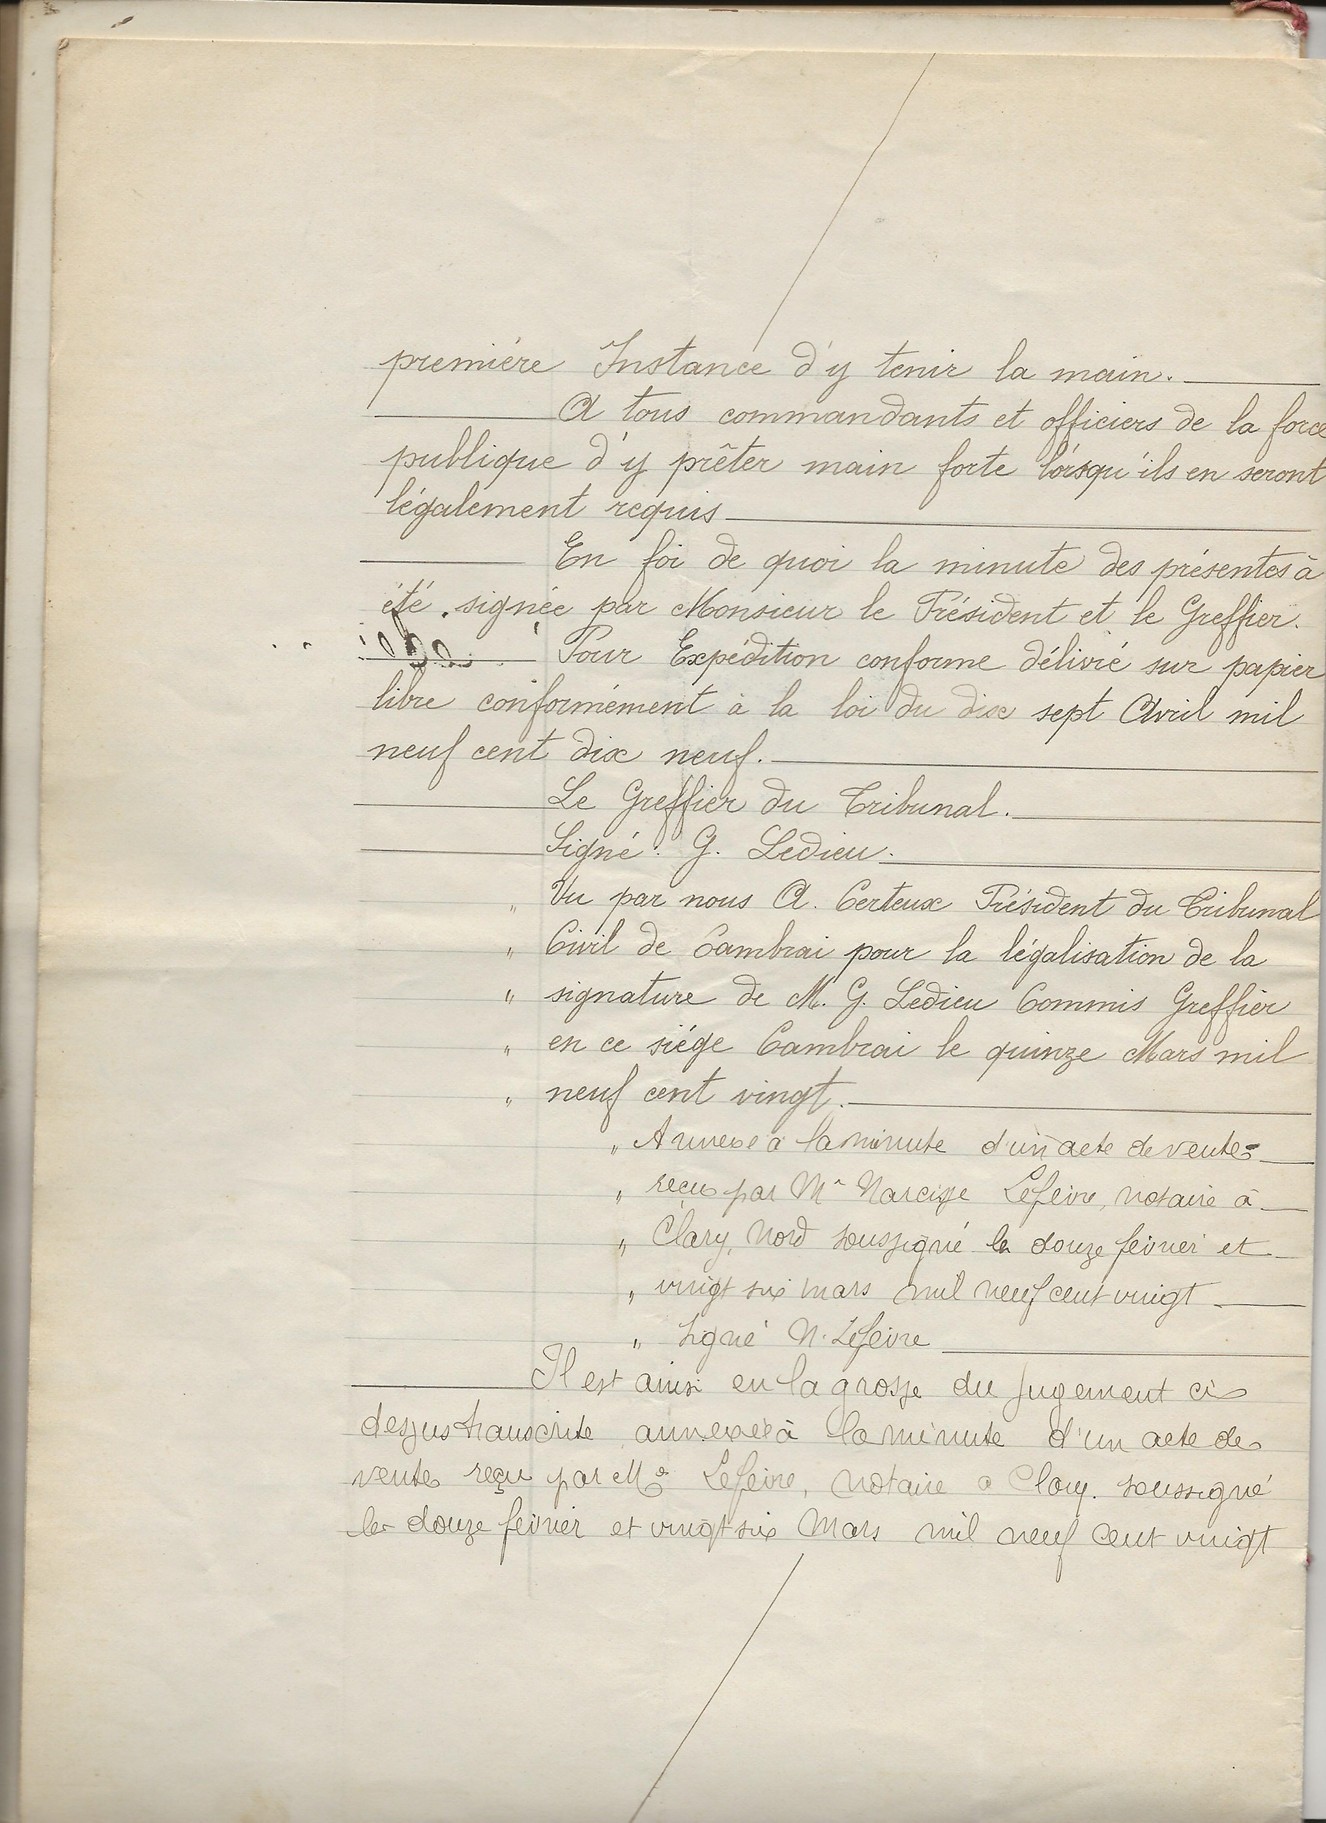 première Instance d'y tenir la main.
A tous commandants et officiers de la force
publique d'y prêter main forte lorsqu'ils en seront
légalement requis
En foi de quoi la minute des présentes à
été signée par Monsieur le Président et le Greffier.
Pour Expédition conforme délivré sur papier
libre conformément à la loi du dix sept Avril mil
neuf cent dix neuf.
Le Greffier du Tribunal.
Signé. G. Ledieu.
" Vu par nous A. Certeux Président du Tribunal
" Civil de Cambrai pour la légalisation de la
" signature de M. G. Ledieu Commis Greffier
" en ce siége Cambrai le quinze Mars mil
" neuf cent vingt.
" Annexe à la minute d'un acte de vente
" reçu par Me Narcisse Lefeivre, notaire à
" Clary, Nord soussigné le douze février et
" vingt six mars mil neuf cent vingt
" Signé N. Lefeivre
Il est ainsi en la grosse du Jugement ci
dessus transcrite annexée à la minute d'un acte de
vente reçu par Me Lefeivre, notaire a Clary. soussigné
le douze février et vingt six Mars mil neuf cent vingt